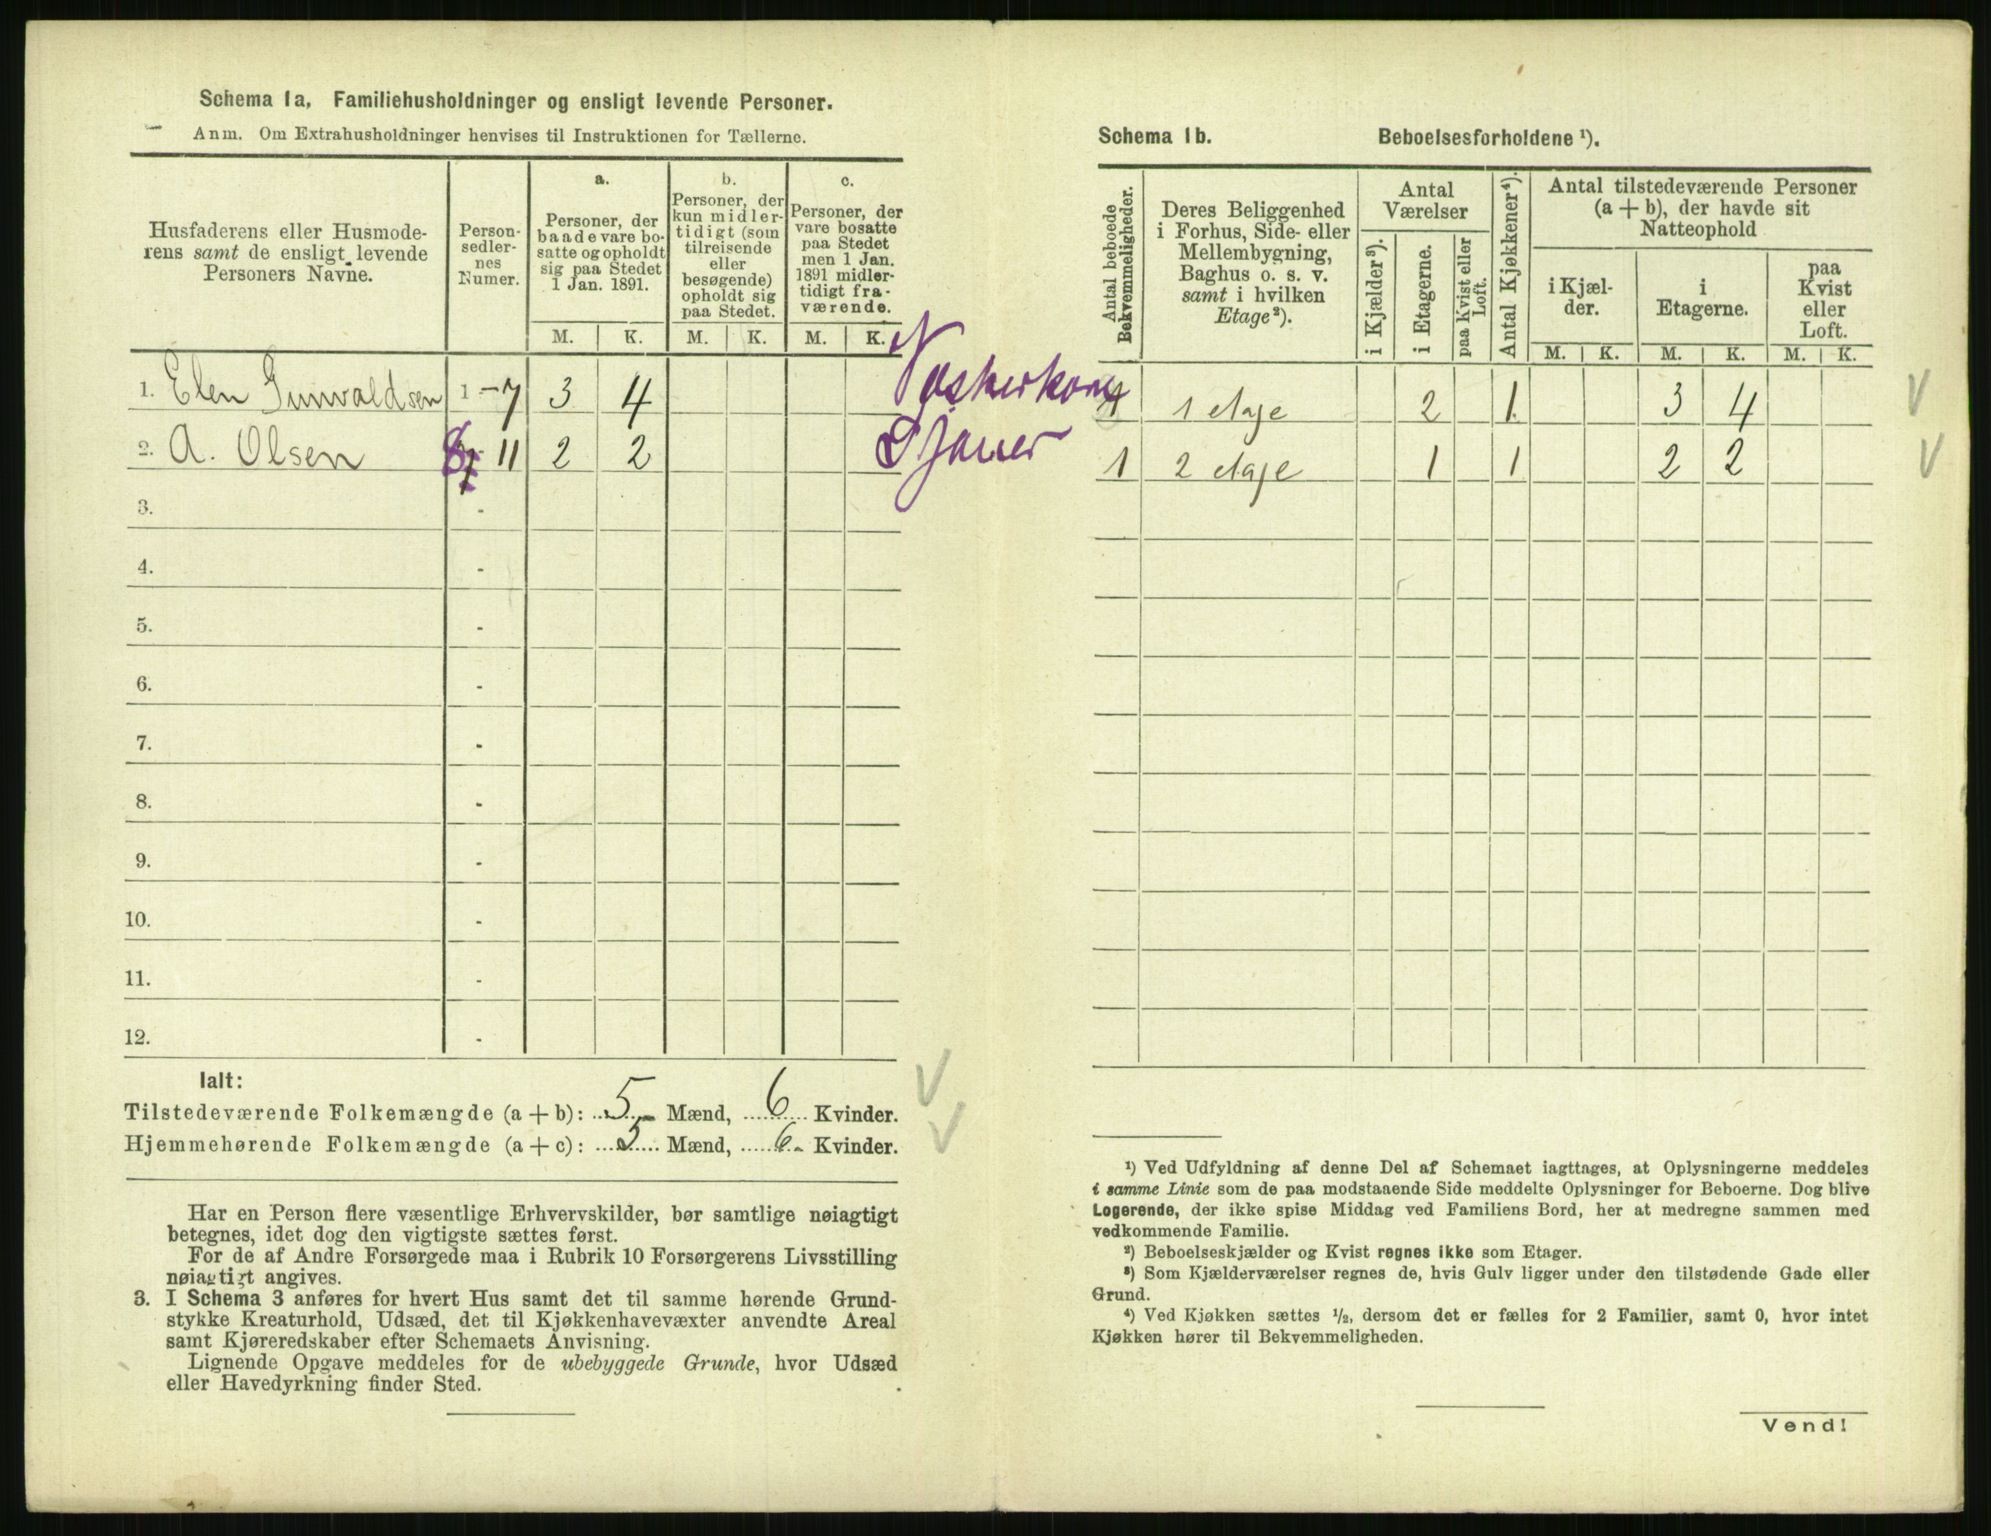 Schema 1a. Familiehusholdninger og ensligt levende Personer.
Anm. Om Extrahusholdninger henvises til Instruktionen for Tællerne.
Husfaderens eller Husmode-
rens samt de ensligt levende
Personers Navne.
Person-
sedler-
nes
Numer.
a.
Personer, der
baade vare bo-
satte og opholdt
sig paa Stedet
1 Jan. 1891.
b.
Personer, der
kun midler-
tidigt (som
tilreisende
eller
besøgende)
opholdt sig
paa Stedet.
c.
Personer, der
vare bosatte
paa Stedet
men 1 Jan.
1891 midler-
tidigt fra-
værende.
M. K. M. K. M. K.
1. Elen Gunvaldsen 1 - 7 3 4 Vaskerkone
2. A. Olsen 8 - 11 2 2
3. -
4. -
5. -
6. -
7. -
8. -
9. -
10. -
11. -
12. -
Ialt:
Tilstedeværende Folkemængde (a + b): 5 Mænd, 6 Kvinder.
Hjemmehørende Folkemængde (a + c): 5 Mænd, 6 Kvinder.
Har en Person flere væsentlige Erhvervskilder, bør samtlige nøiagtigt
betegnes, idet dog den vigtigste sættes først.
For de af Andre Forsørgede maa i Rubrik 10 Forsørgerens Livsstilling
nøiagtigt angives.
3. I Schema 3 anføres for hvert Hus samt det til samme hørende Grund-
stykke Kreaturhold, Udsæd, det til Kjøkkenhavevæxter anvendte Areal
samt Kjøreredskaber efter Schemaets Anvisning.
Lignende Opgave meddeles for de ubebyggede Grunde, hvor Udsæd
eller Havedyrkning finder Sted.
Schema 1b. Beboelsesforholdene ¹).
Antal beboede
Bekvemmeligheder.
Deres Beliggenhed
i Forhus, Side- eller
Mellembygning,
Baghus o. s. v.
samt i hvilken
Etage²).
Antal
Værelser
i Kjælder³).
i Etagerne.
paa Kvist eller
Loft.
Antal Kjøkkener⁴).
Antal tilstedeværende Personer
(a + b), der havde sit
Natteophold
i Kjæl-
der.
i
Etagerne.
paa
Kvist
eller
Loft.
M. K. M. K. M. K.
1 1 etage 2 1 3 4
1 2 etage 1 1 2 2
¹) Ved Udfyldning af denne Del af Schemaet iagttages, at Oplysningerne meddeles
i samme Linie som de paa modstaaende Side meddelte Oplysninger for Beboerne. Dog blive
Logerende, der ikke spise Middag ved Familiens Bord, her at medregne sammen med
vedkommende Familie.
²) Beboelseskjælder og Kvist regnes ikke som Etager.
³) Som Kjælderværelser regnes de, hvis Gulv ligger under den tilstødende Gade eller
Grund.
⁴) Ved Kjøkken sættes ½, dersom det er fælles for 2 Familier, samt 0, hvor intet
Kjøkken hører til Bekvemmeligheden.
Vend!